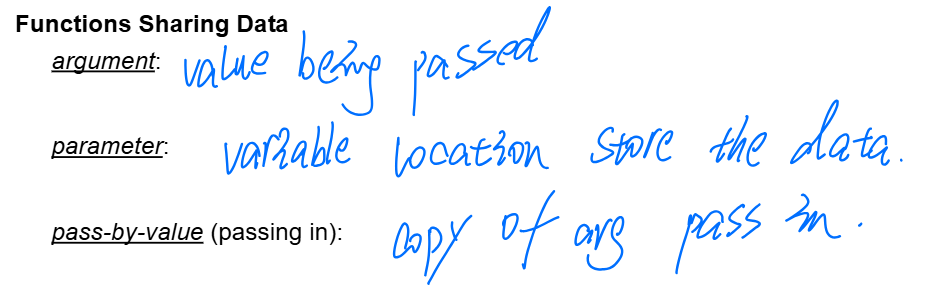 Functions Sharing Data
argument: value being passed
parameter: variable location store the data.
pass-by-value (passing in): copy of arg pass in.